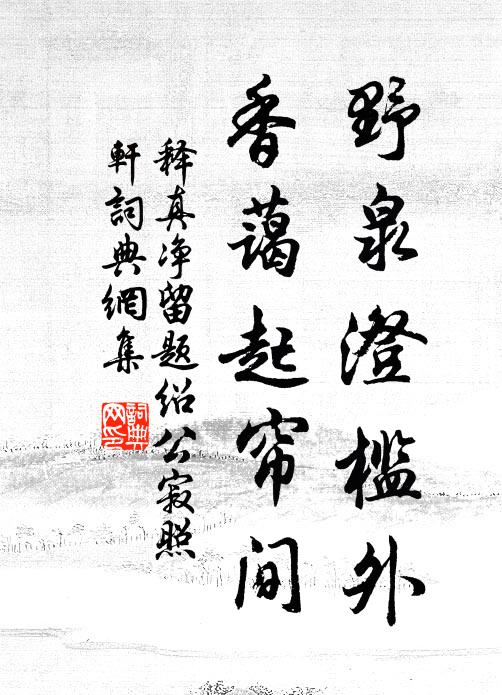 野泉澄槛外
香蔼起帘间
释真净留题绍公寂照
軒詞典網集
詞典网印